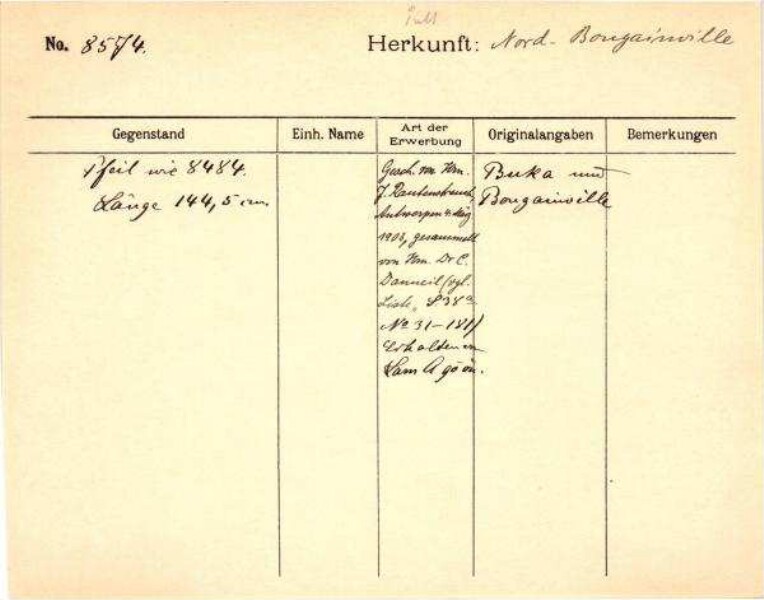 No. 8574.
Herkunft: Nord-Bougainville
Gegenstand
Einh. Name
Art der Erwerbung
Originalangaben
Bemerkungen
Pfeil wie 8484.
Länge 144,5 cm.
Gesch. von Hrn.
J. Rautenstrauch,
Antwerpen
1903, gesammelt
von Hrn. Dr C.
Danneil (vgl.
Liste, S 38a
No 31-181)
Erhalten
Buka und
Bougainville